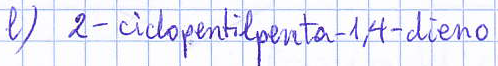 l) 2-ciclopentilpenta-1,4-dieno